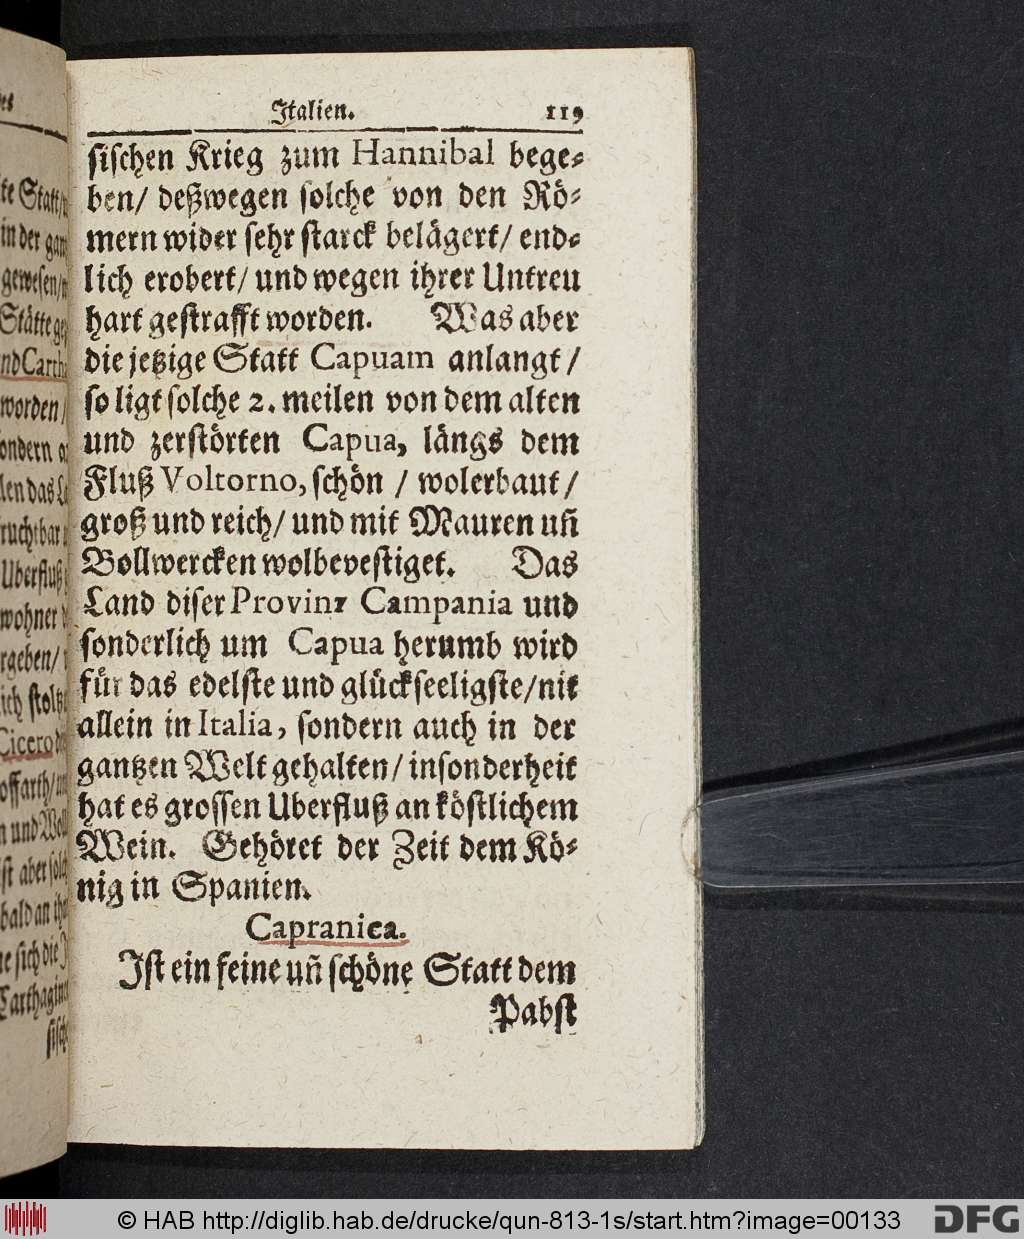 Italien. 119
sischen Krieg zum Hannibal bege-
ben/ deßwegen solche von den Rö-
mern wider sehr starck belägert/ end-
lich erobert/ und wegen ihrer Untreu
hart gestrafft worden. Was aber
die jetzige Statt Capuam anlangt /
so ligt solche 2. meilen von dem alten
und zerstörten Capua, längs dem
Fluß Voltorno, schön / wolerbaut /
groß und reich/ und mit Mauren uñ
Bollwercken wolbevestiget. Das
Land diser Provinz Campania und
sonderlich um Capua herumb wird
für das edelste und glückseeligste/ nit
allein in Italia, sondern auch in der
gantzen Welt gehalten/ insonderheit
hat es grossen Uberfluß an köstlichem
Wein. Gehöret der Zeit dem Kö-
nig in Spanien.
Capranica.
Ist ein feine uñ schöne Statt dem
Pabst
© HAB http://diglib.hab.de/drucke/qun-813-1s/start.htm?image=00133
DFG